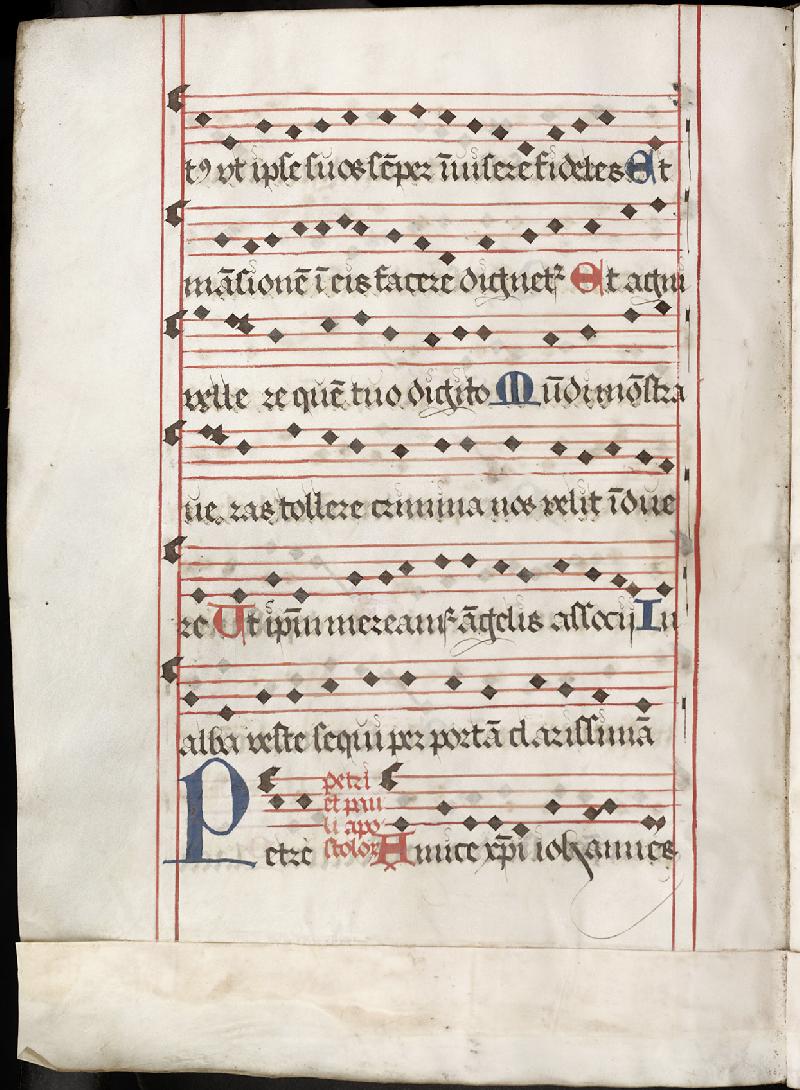 tꝯ vt ipse suos sēper īuisere fideles Et
māsionē ī eis facere dignetꝛ Et agni
velle re quē tuo digito Mūdi mōstra
ue ras tollere crimina nos velit īdue
re Ut ipīm mereamꝛ āgelis associj In
alba veste sequi per portā clarissimā
Petre
petri
et pau
li apo
stolorꝫ
Amice xp̄i iohannes